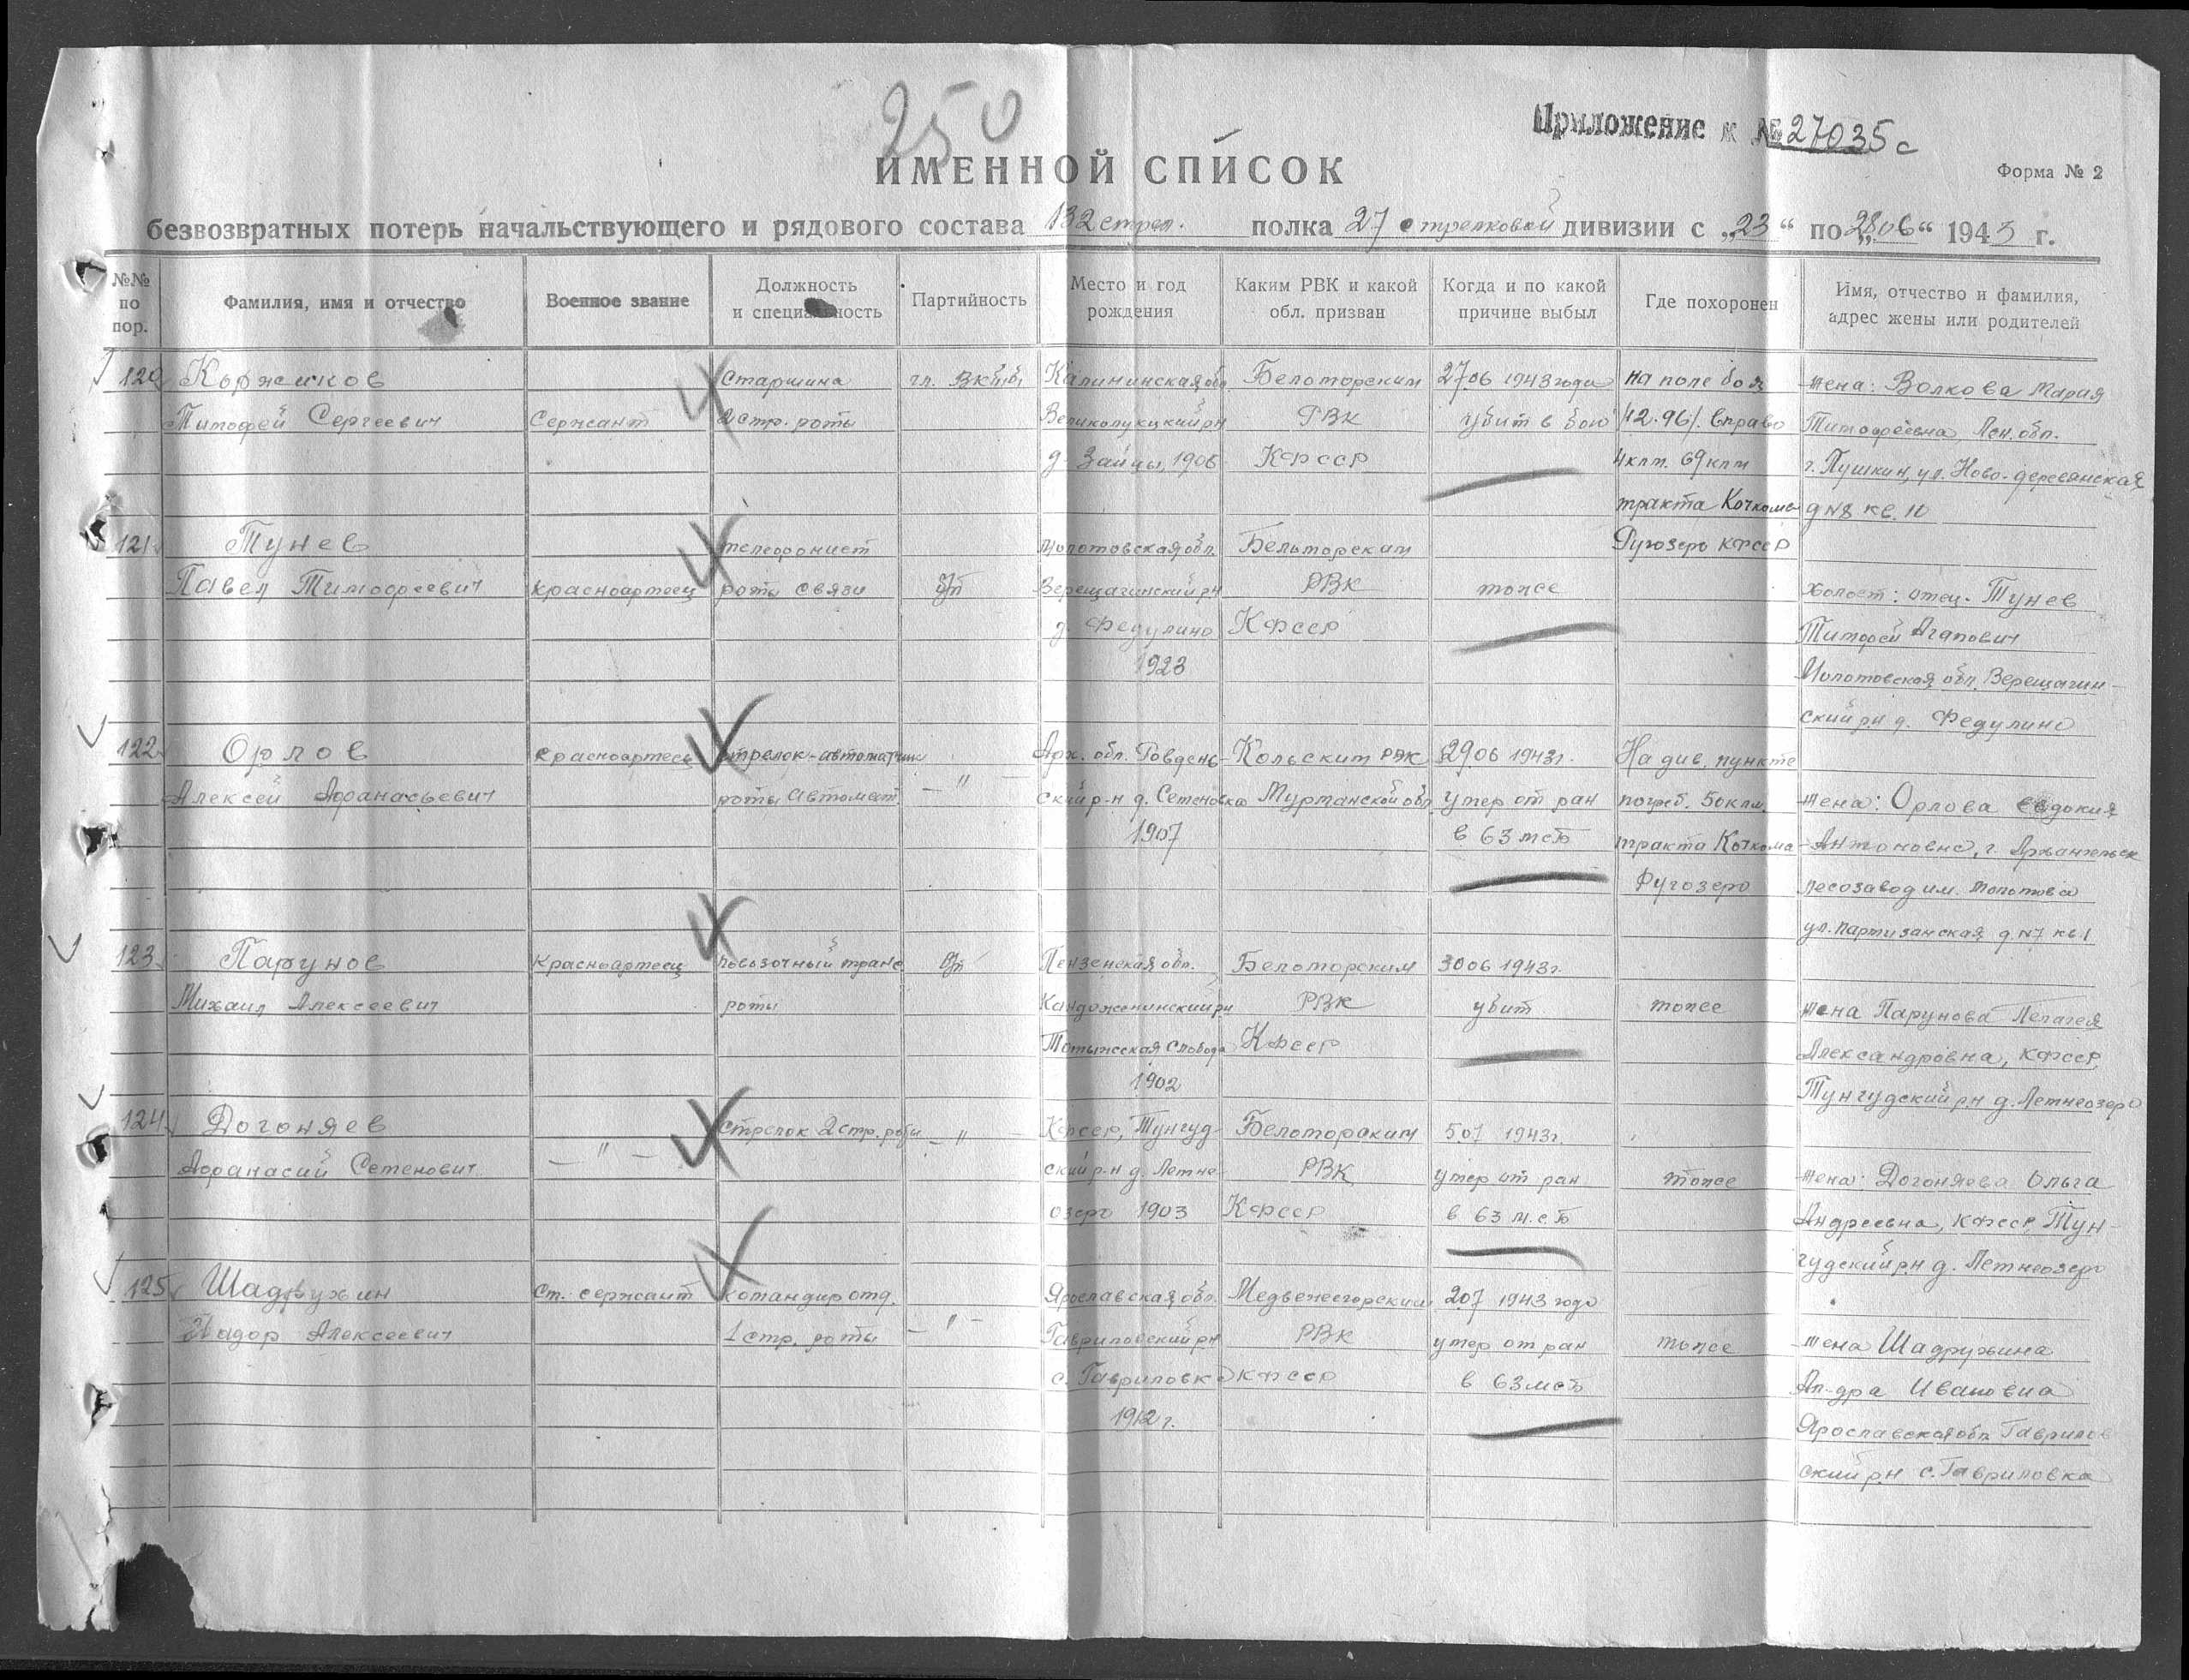 250
Приложение к № 27035с
ИМЕННОЙ СПИСОК
Форма № 2
безвозвратных потерь начальствующего и рядового состава 132 стрел. полка 27 стрелковой дивизии с „23“ по „28.06“ 1943 г.
№№ по пор.
Фамилия, имя и отчество
Военное звание
Должность и специальность
Партийность
Место и год рождения
Каким РВК и какой обл. призван
Когда и по какой причине выбыл
Где похоронен
Имя, отчество и фамилия, адрес жены или родителей
120 Коржиков Старшина чл. ВКП(б) Калининская обл Беломорским 27 06 1943 года на поле боя жена: Волкова Мария
Тимофей Сергеевич Сержант 2 стр. роты Великолукский рн РВК убит в бою /12.96/. Справо Тимофеевна, Лен. обл.
д. Зайцы, 1906 КФССР 4 клм. 69 клм г. Пушкин, ул. Ново-деревянская
тракта Кочкома д N8 кв. 10
121 Тунев телефонист Молотовская обл. Беломорским Ругозеро КФССР
Павел Тимофеевич Красноармеец роты связи б/п Верещагинский рн РВК тоже холост: отец. Тунев
д. Федулино КФССР Тимофей Агапович
1923 Молотовская обл. Верещагин-
ский рн д. Федулино
122 Орлов Красноармеец стрелок-автоматчик Арх. обл. Ровдень- Кольским РВК 29 06 1943г. На див. пункте
Алексей Афанасьевич роты автомат. —"— ский р-н д. Семеновка Мурманской обл умер от ран погреб. 50 клм. жена: Орлова Евдокия
1907 в 63 мсб тракта Кочкома- Антоновна, г. Архангельск
Ругозеро лесозавод им. Молотова
ул. Партизанская д. N7 кв. 1
123 Парунов Красноармеец повозочный транс. б/п Пензенская обл. Беломорским 30 06 1943г.
Михаил Алексеевич роты РВК убит тоже жена Парунова Пелагея
Слобода КФССР Александровна, КФССР,
1902 Тунгудский рн д. Летнеозеро
124 Догоняев Стрелок 2 стр. роты —"— КФССР, Тунгуд- Беломорским 5 07 1943г.
Афанасий Семенович —"— ский р-н д. Летне- РВК умер от ран тоже жена: Догоняева Ольга
озеро 1903 КФССР в 63 м.с.б Андреевна, КФССР, Тун-
гудский рн д. Летнеозеро
125 Шадрухин Ст. сержант командир отд. Ярославская обл. Медвежегорским 2 07 1943 года
Алексеевич 1 стр. роты —"— Гавриловский рн РВК умер от ран тоже жена Шадрухина
с. Гавриловка КФССР в 63 мсб Ал-дра Ивановна
1912 г. Ярославская обл. Гаврилов
ский рн с. Гавриловка